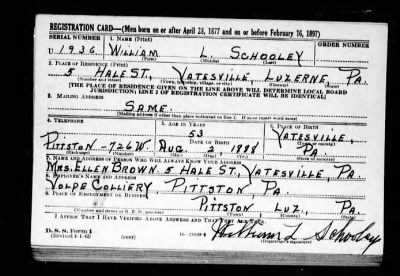 REGISTRATION CARD—(Men born on or after April 28, 1877 and on or before February 16, 1897)
SERIAL NUMBER 1. NAME (Print) ORDER NUMBER
U 1936 WILLIAM L. SCHOOLEY
(First) (Middle) (Last)
2. PLACE OF RESIDENCE (Print)
5 HALE ST., YATESVILLE, LUZERNE, PA.
(Number and street) (Town, township, village, or city) (County) (State)
[THE PLACE OF RESIDENCE GIVEN ON THE LINE ABOVE WILL DETERMINE LOCAL BOARD
JURISDICTION; LINE 2 OF REGISTRATION CERTIFICATE WILL BE IDENTICAL]
3. MAILING ADDRESS
SAME.
[Mailing address if other than place indicated on line 2. If same insert word same]
4. TELEPHONE 5. AGE IN YEARS 6. PLACE OF BIRTH
53 YATESVILLE,
DATE OF BIRTH (Town or county)
PITTSTON - 726W. AUG. 2 1888 PA.
(Exchange) (Number) (Mo.) (Day) (Yr.) (State or country)
7. NAME AND ADDRESS OF PERSON WHO WILL ALWAYS KNOW YOUR ADDRESS
MRS. ELLEN BROWN. 5 HALE ST, YATESVILLE, PA.
8. EMPLOYER'S NAME AND ADDRESS
VOLPE COLLIERY PITTSTON PA.
9. PLACE OF EMPLOYMENT OR BUSINESS
PITTSTON LUZ., PA.
(Number and street or R. F. D. number) (Town) (County) (State)
I AFFIRM THAT I HAVE VERIFIED ABOVE ANSWERS AND THAT THEY ARE TRUE.
D. S. S. Form 1
(Revised 4-1-42) (over) William L Schooley
(Registrant's signature)